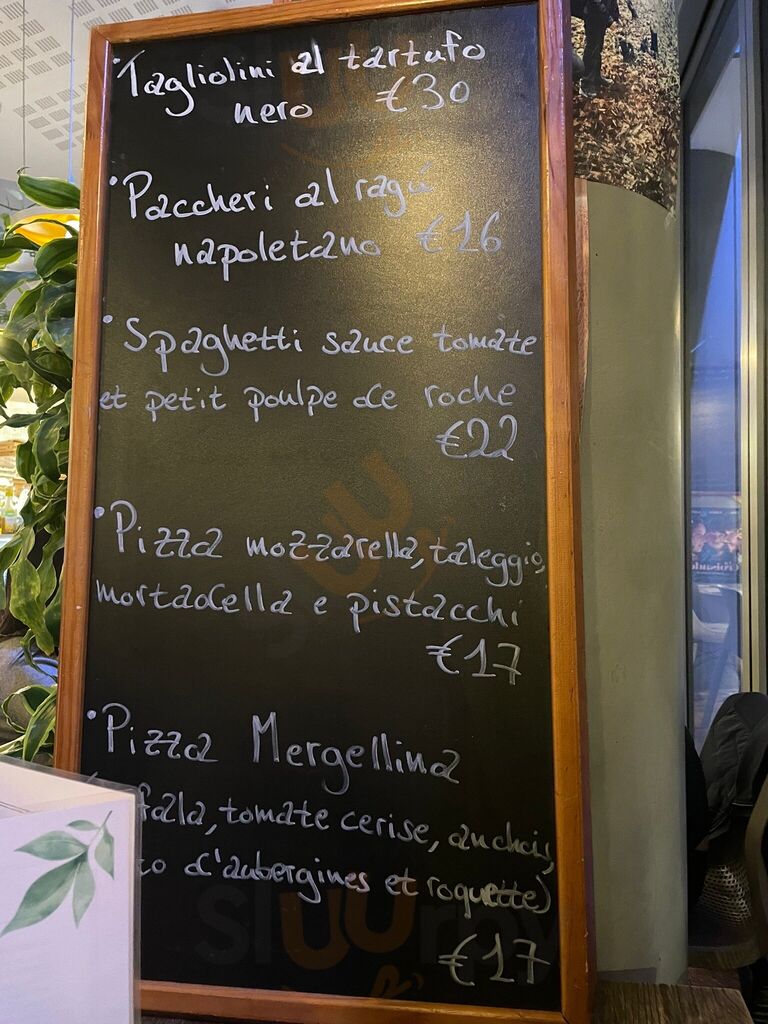 • Tagliolini al tartufo
nero €30
• Paccheri al ragú
napoletano €26
• Spaghetti sauce tomate
et petit poulpe de roche
€22
• Pizza mozzarella, taleggio,
mortadella e pistacchi
€17
• Pizza Mergellina
tomate cerise, anchois,
d'aubergines et roquette)
€17
sluurpy